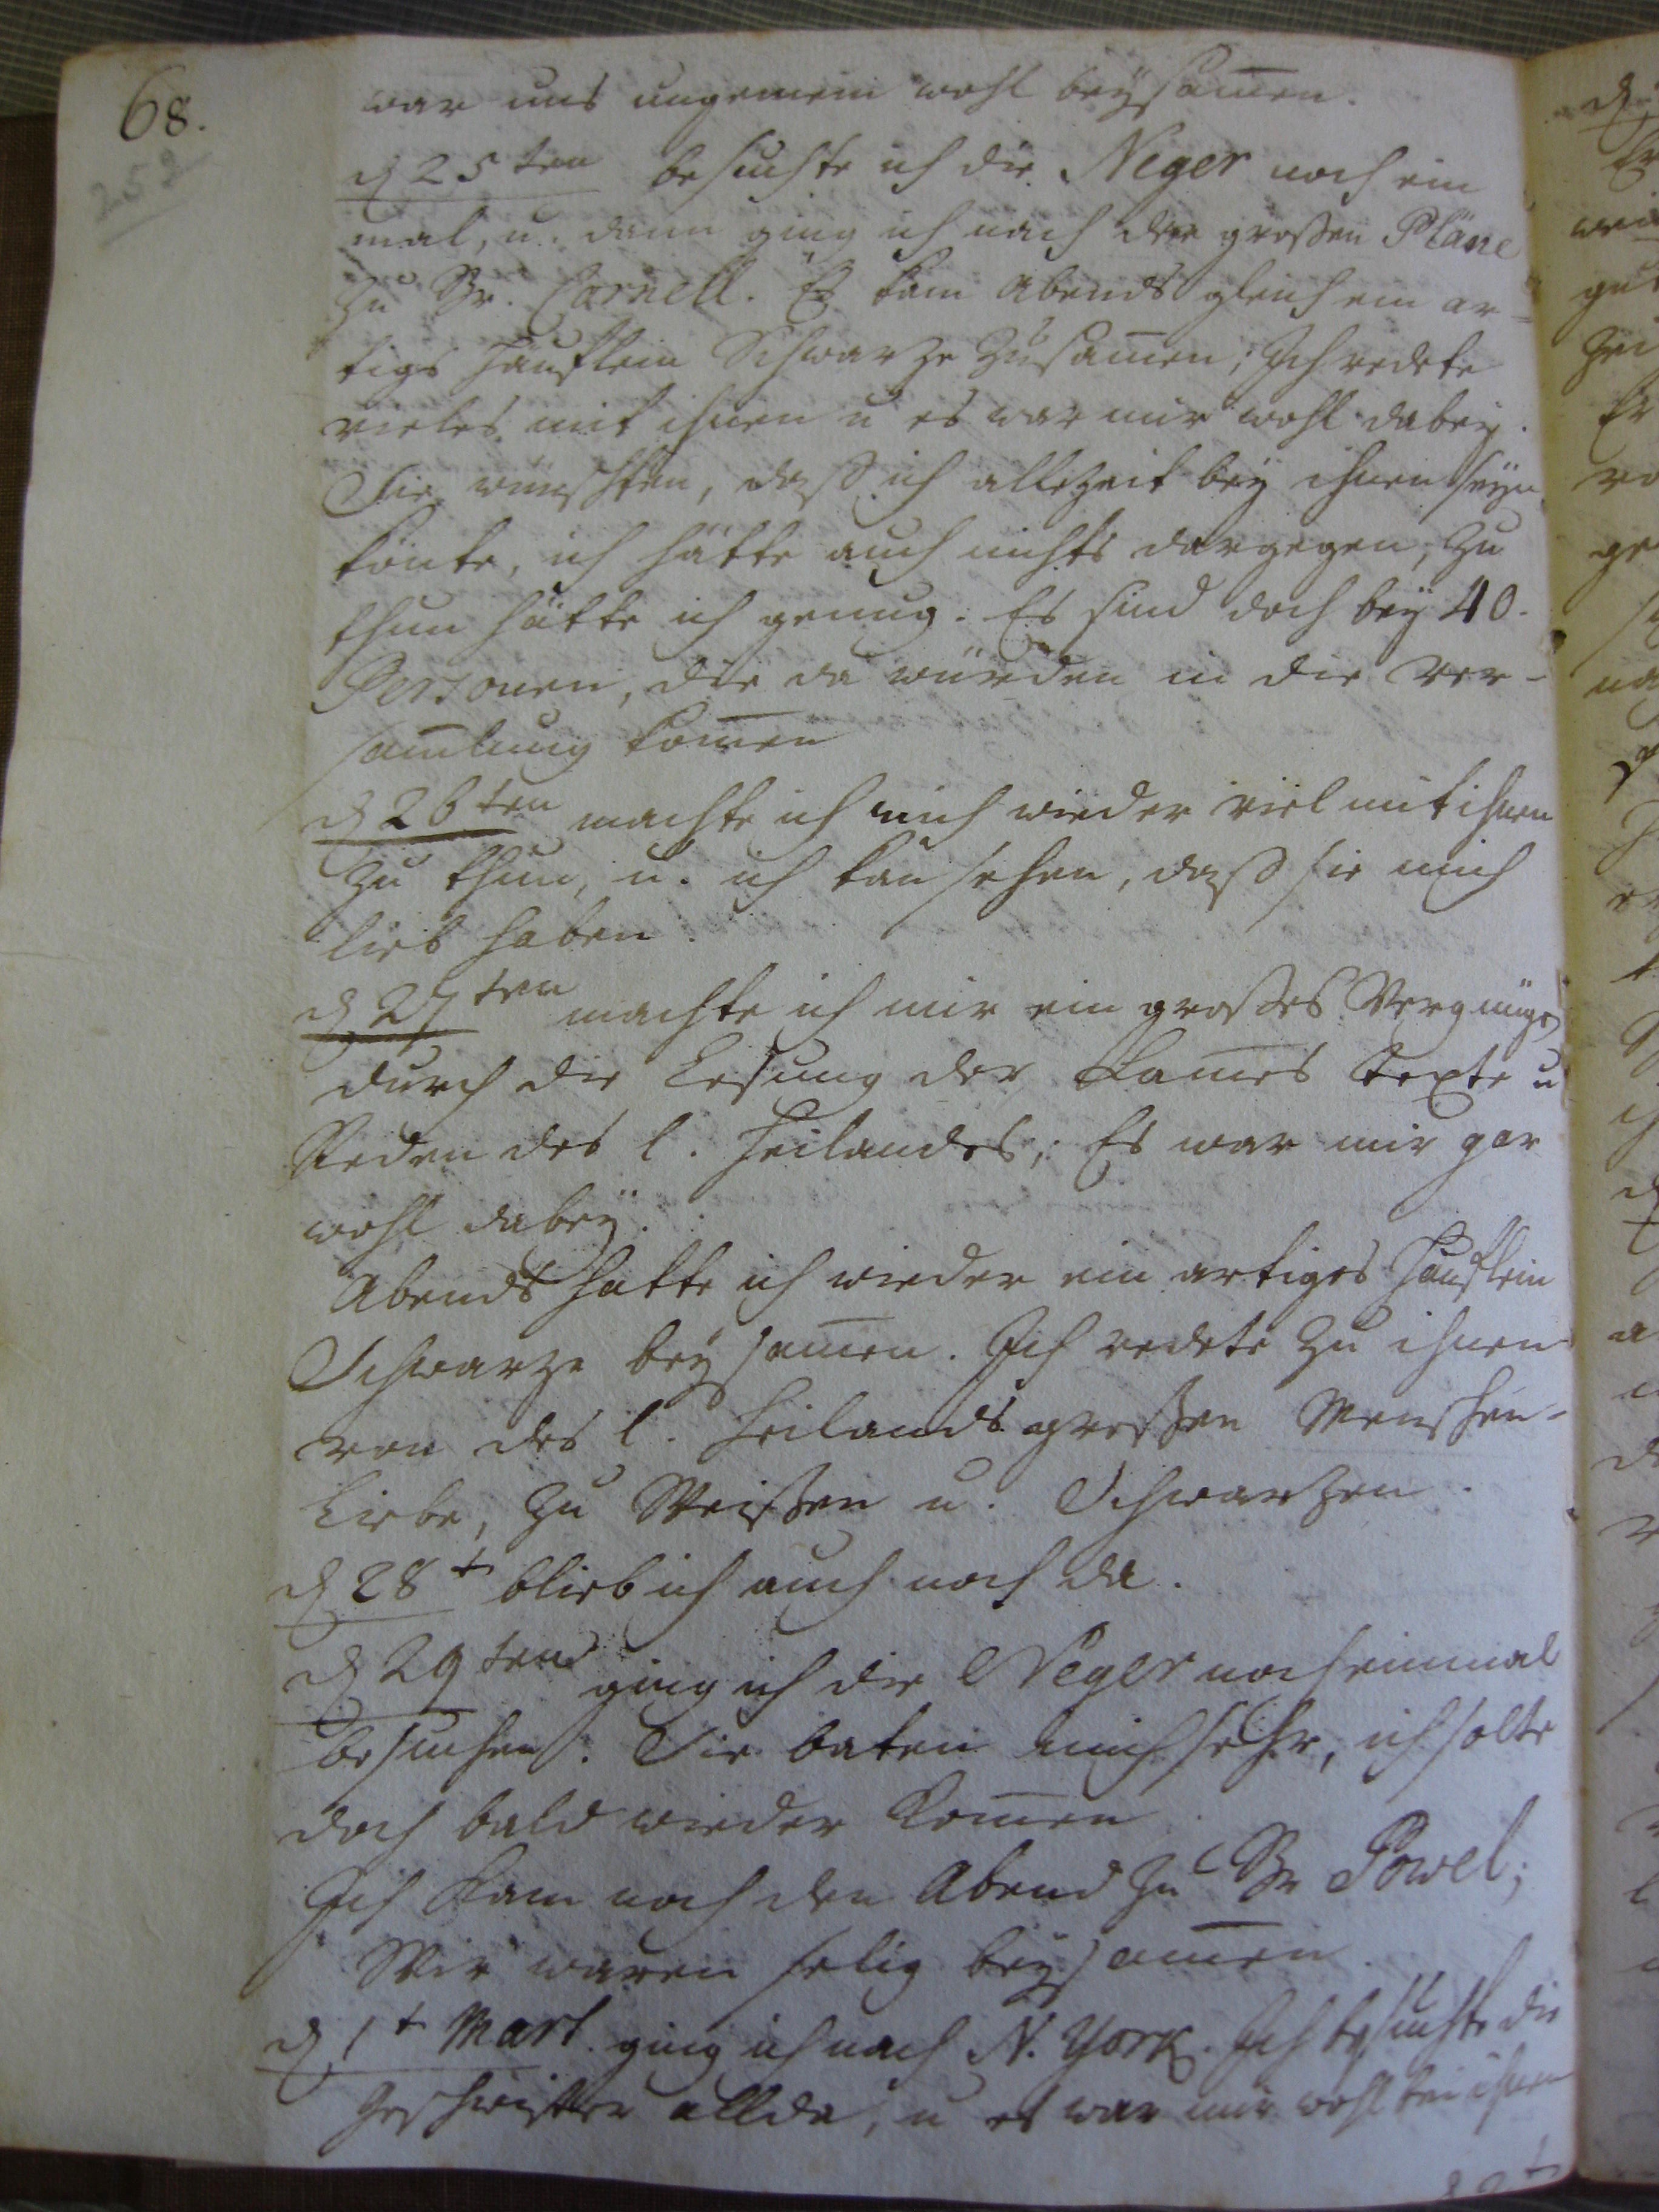 68.
252
war uns ungemein wohl beysam̄en.
d 25ten besuchte ich die Neger noch ein
mal, u. dann ging ich nach der großen Pläne
zu Br. Cornell. Es kam Abends gleich ein ar=
tigs Häuflein Schwarze zusam̄en; Ich redete
vieles mit ihnen u es war mir wohl dabey.
Sie wünschten, daß ich allezeit bey ihnen seyn
könte, ich hätte auch nichts dargegen, zu
thun hätte ich genug. Es sind doch bey 40.
Personen, die da würden in die Ver-
sam̄lung kom̄en
d 26ten machte ich mich wieder viel mit ihnen
zu thun, u. ich kan sehen, daß sie mich
lieb haben.
d 27ten machte ich mir ein großes Vergnügen
durch die Lesung der Lam̄es Texte u
Reden des l. Heilandes; Es war mir gar
wohl dabey.
Abends hatte ich wieder ein artiges Häuflein
Schwarze beysam̄en. Ich redete zu ihnen
von des l. Heilands großen Menschen-
Liebe, zu Weißen u. Schwarzen.
d 28t blieb ich auch noch da.
d 29ten ging ich die Neger noch einmal
besuchen. Sie baten mich sehr, ich solte
doch bald wieder kom̄en
Ich kam noch den Abend zu Br Powel;
Wir waren selig beysam̄en.
d 1t Mart. ging ich nach N. York. Ich besuchte die
Geschwister allda, u es war mir wohl bei ihnen